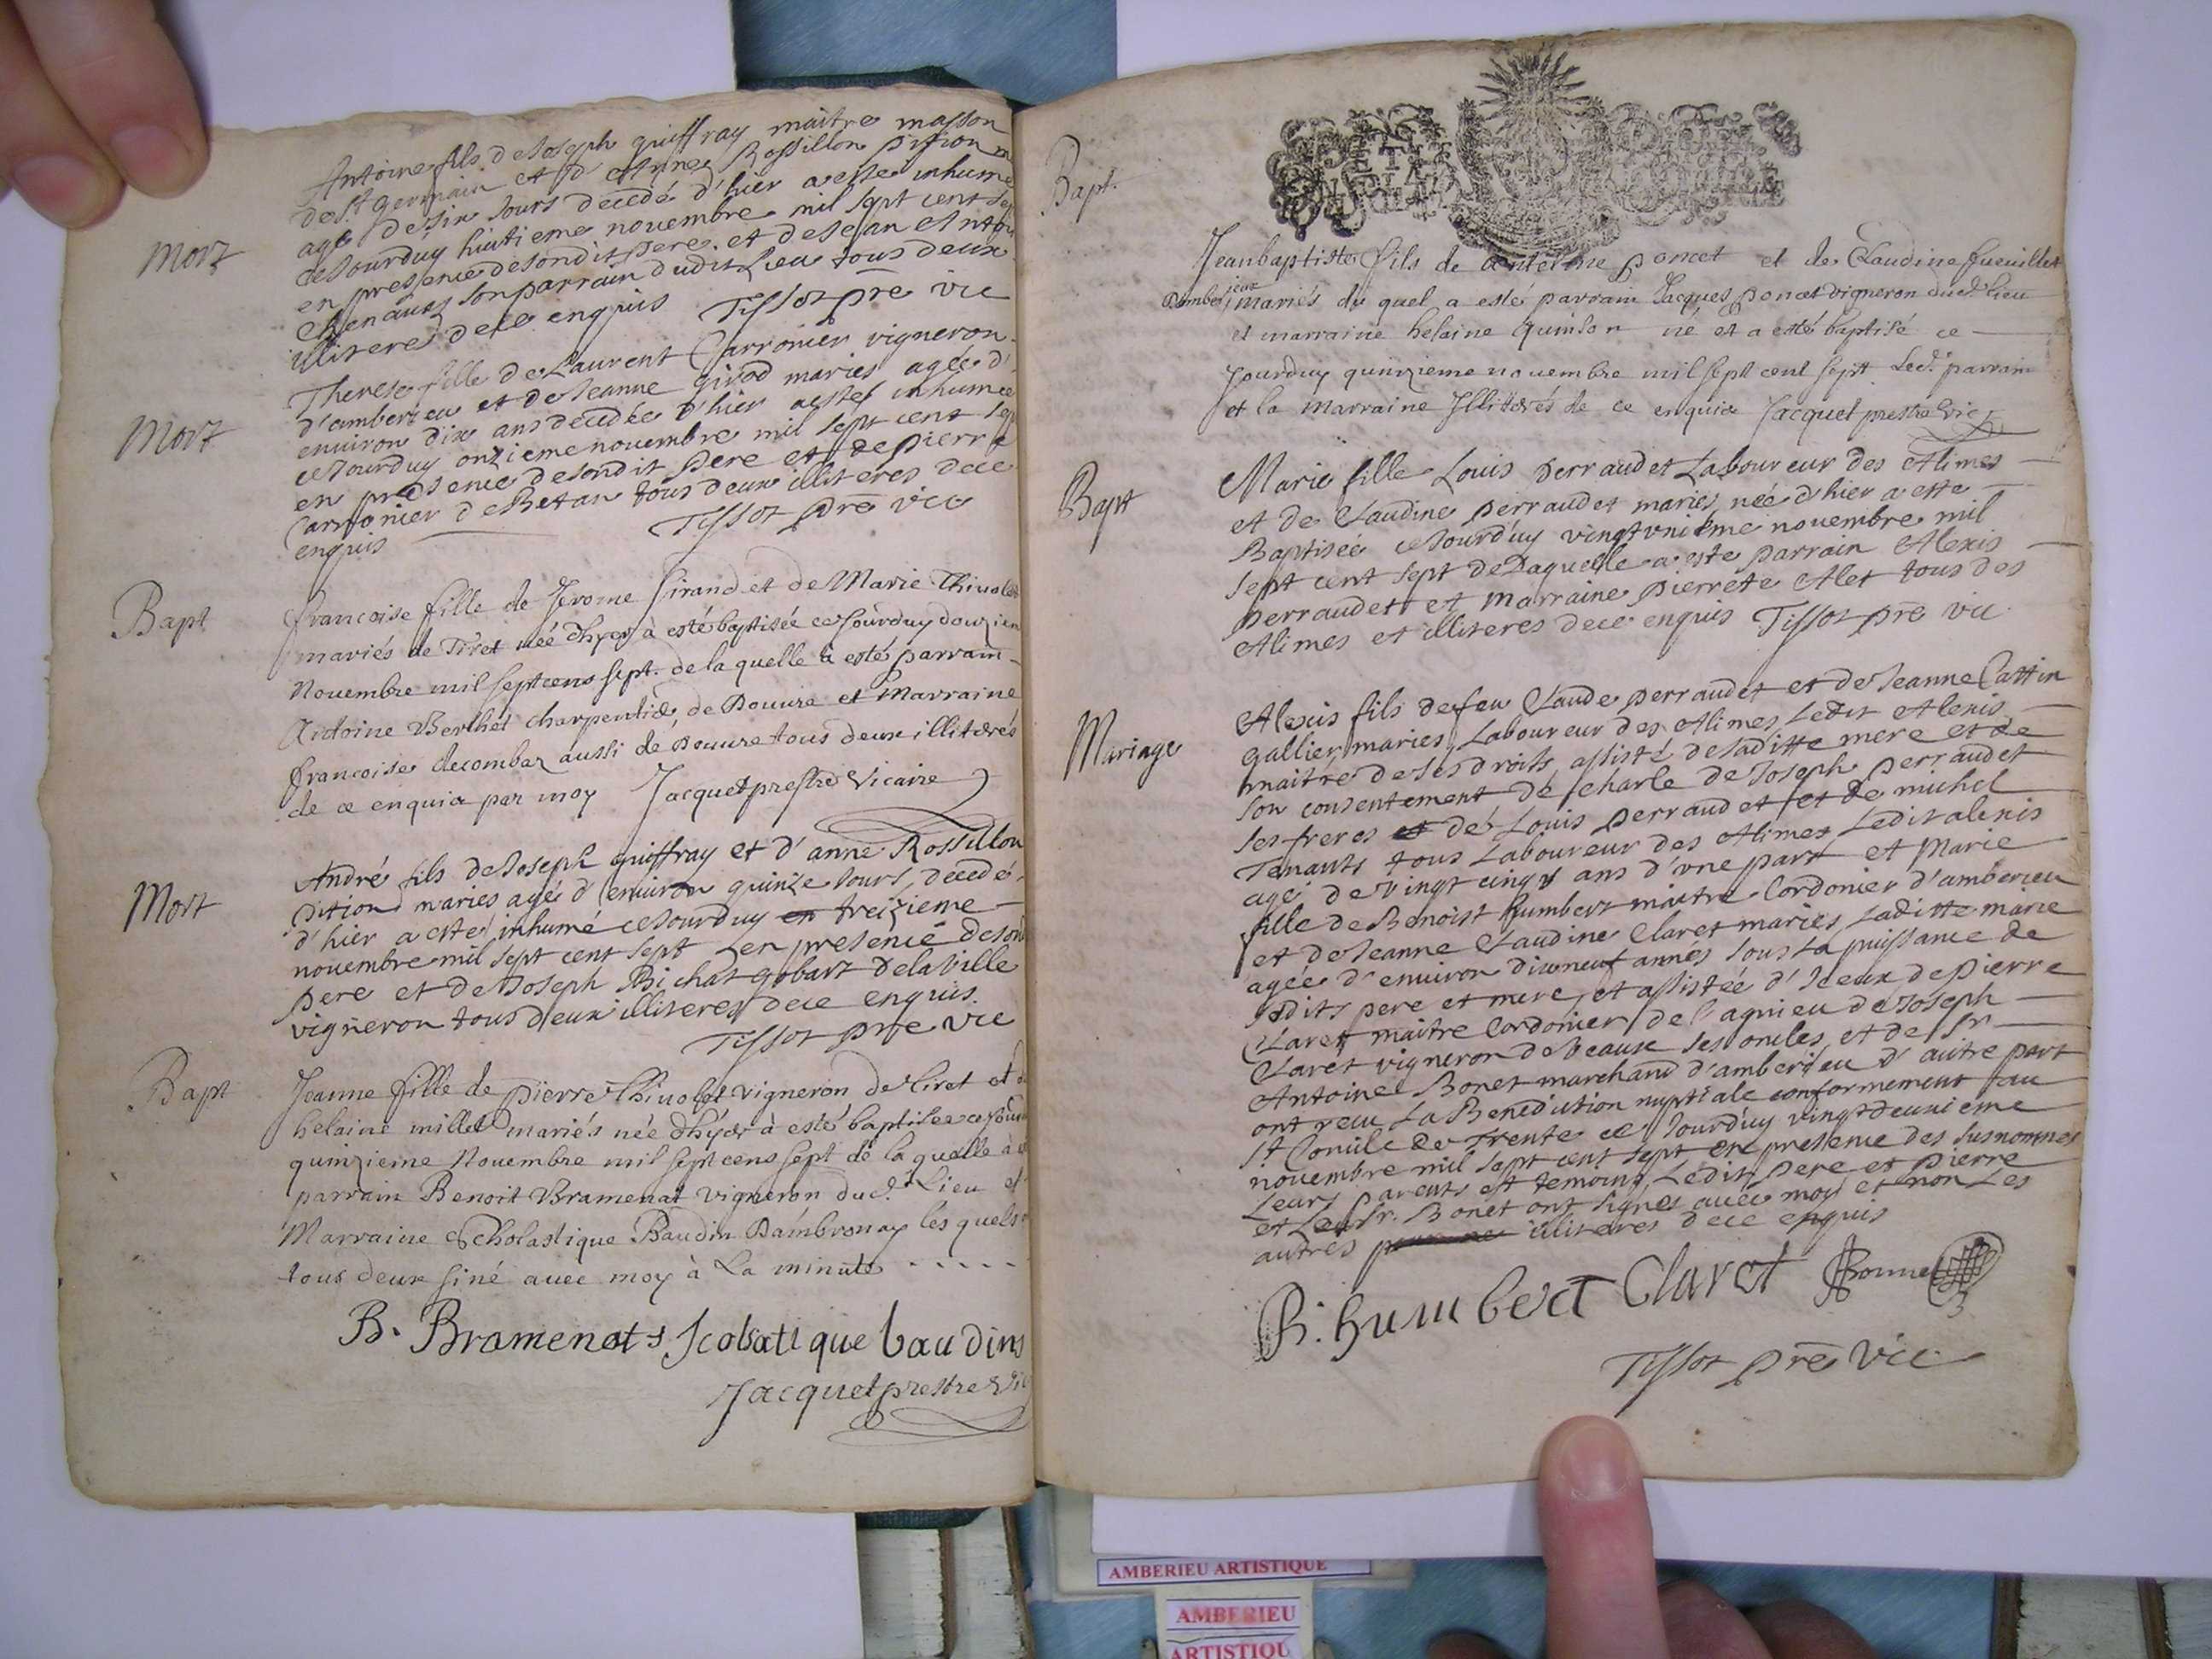 Mort
Antoine fils de Joseph guiffray maitre masson
de St germain et d'Anne Rossillon pition
agé de six Jours decedé d'hier a este inhumé
ce Jourduy huitieme novembre mil sept cent sep
en pressence de sondit pere et de Jean Anto
son parrain dudit Lieu tous deux
illitere de ce enquis Tissot pre vic
Mort
Therese fille de Laurent Carronier vigneron
d'amberieu et de Jeanne girod maries agée d'
environ dix ans decedée d'hier a este inhumee
ce Jourduy onzieme novembre mil sept cent sep
en presence de sondit pere et de pierre
Carronier de Betan tous deux illiteres de ce
enquis Tissot pre vic
Bapt
francoise fille de Jerome Sirand et de Marie Thivolet
mariés de Tiret née d'hyer à esté baptisée ce Jourduy douzien
Novembre mil sept cens sept. de la quelle à esté parrain
Antoine Berthet charpentié, de Douvre et Marraine
francoise decombaz aussi de Douvre tous deux illiterés
de ce enquis par moy Jacquet prestre Vicaire
Mort
André fils de Joseph guiffray et d'anne Rossillon
pition maries agé d'environ quinze Jours, decedé
d'hier a esté inhumé ce Jourduy treizieme
novembre mil sept cent sept en presence de son
pere et de Joseph Bichat gobart de la Ville
vigneron tous deux illiteres de ce enquis.
Tissot pre vic
Bapt
Jeanne fille de pierre Thivolet vigneron de Tiret et de
helaine millet mariés née d'hyer à esté baptisée ce Jourd
quinzieme Novembre mil sept cens sept de la quelle à e
parrain Benoit Bramenat vigneron dud.t Lieu et
Marraine Scholastique Baudin Dambronay les quels
tous deux siné avec moy à La minute . . . . .
B. Bramenat Scolastique baudin
Jacquet prestre Vic
Bapt.
Jeanbaptiste fils de antelme poncet et de Claudine fueuillet
Damberieux mariés du quel a esté parrain Jacques poncet vigneron dud.t lieu
et marraine helaine quinson né et a esté baptisé ce
Jourduy quinzieme novembre mil sept cent sept Led.t parrain
et la marraine Illiterés de ce enquis Jacquet prestre Vic
Bapt
Marie fille Louis perraudet Laboureur des Alimes
et de Claudine perraudet maries née d'hier a este
Baptisée ce Jourd'uy vingt unième novembre mil
sept cent sept de Laquelle a este parrain Alexis
perraudet et marraine pierrete Alet tous des
Alimes et illiteres de ce enquis Tissot pre vic
Mariage
Alexis fils de feu Claude perraudet et de Jeanne Cattin
gallier maries, Laboureur des Alimes, Ledit Alexis
maitre de ses droits assisté de saditte mere et de
son consentement de charle de Joseph perraudet
ses freres de Louis perraudet et de michel
Tenants tous Laboureur des Alimes Ledit alexis
agé de vingt cinqs ans d'une part et Marie
fille de Benoist humbert maitre Cordonier d'amberieu
et de Jeanne Claudine Claret maries, Laditte marie
agée d'environ dixneuf annés sous La puissance de
sesdits pere et mere, et assistée d'Iceux de pierre
Claret maitre Cordonier de Lagnieu de Joseph
Claret vigneron de veaux ses oncles, et de Sr
Antoine Bonet marchand d'amberieu d'autre part
ont reçu La Benediction nuptiale conformement au
St Concile de Trente ce Jourd'uy vingt deuxieme
novembre mil sept cent sept en presence des susnommes
Leurs parents et temoins, Ledits pere et pierre
et Ledit Sr. Bonet ont signes avec moy et non Les
autres illiteres de ce enquis
B. humbert Claret Bonnet
Tissot pre vic
AMBERIEU ARTISTIQUE
AMBERIEU
ARTISTIQU